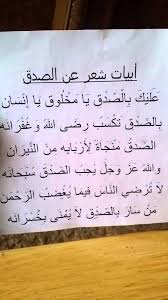 أبيات شعر عن الصدق
عَليكَ بِالصِّدقِ يَا مَخْلُوق يَا إِنْسَان
بِالصِّدقِ تكْسَب رِضَى الله وَ غُفْرَانَه
الصِّدقُ مَنجَاة لأَربَابِه مِنَ النِّيرَان
وَالله عَزَّ وَجَلَّ يُحِبُّ الصِّدْقَ سُبْحَانَه
لاَ تُرْضي النَّاس فِيمَا يُغْضِبُ الرَّحْمَنَ
مَن سَارَ بِالصِّدقِ لاَ يُمْنَى بِخُسْرَانِه